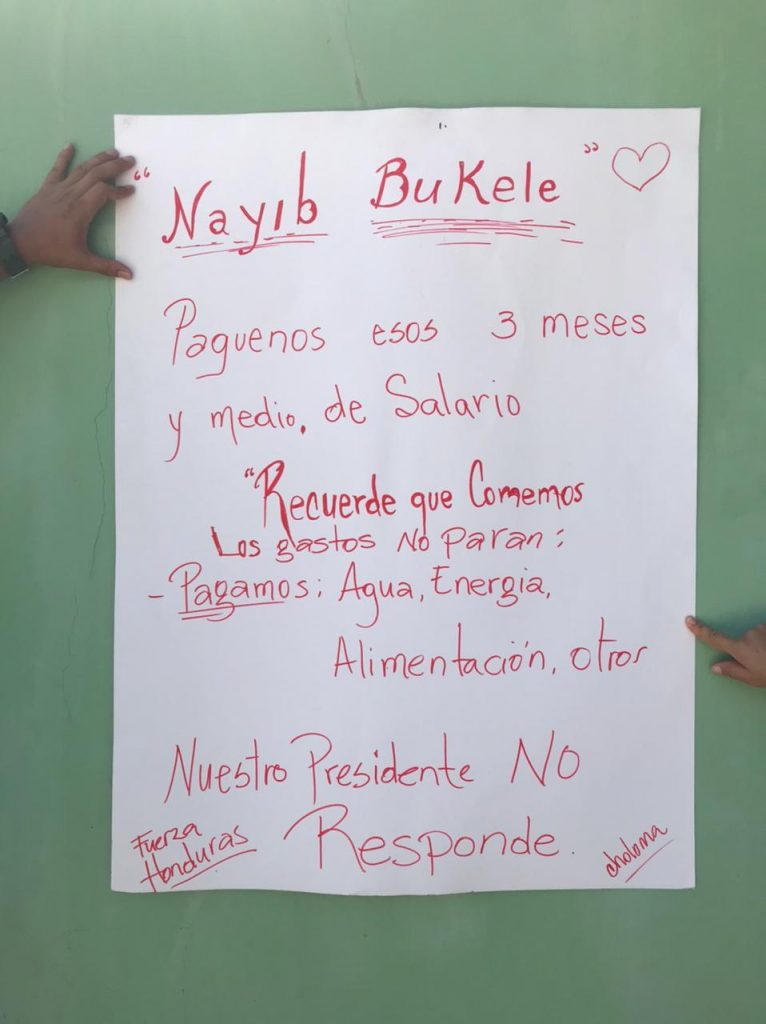 “Nayib Bukele”
Paguenos esos 3 meses
y medio, de Salario
“Recuerde que Comemos
Los gastos No paran:
- Pagamos; Agua, Energia,
Alimentación, otros
Nuestro Presidente NO
Responde.
Fuerza
Honduras
choloma